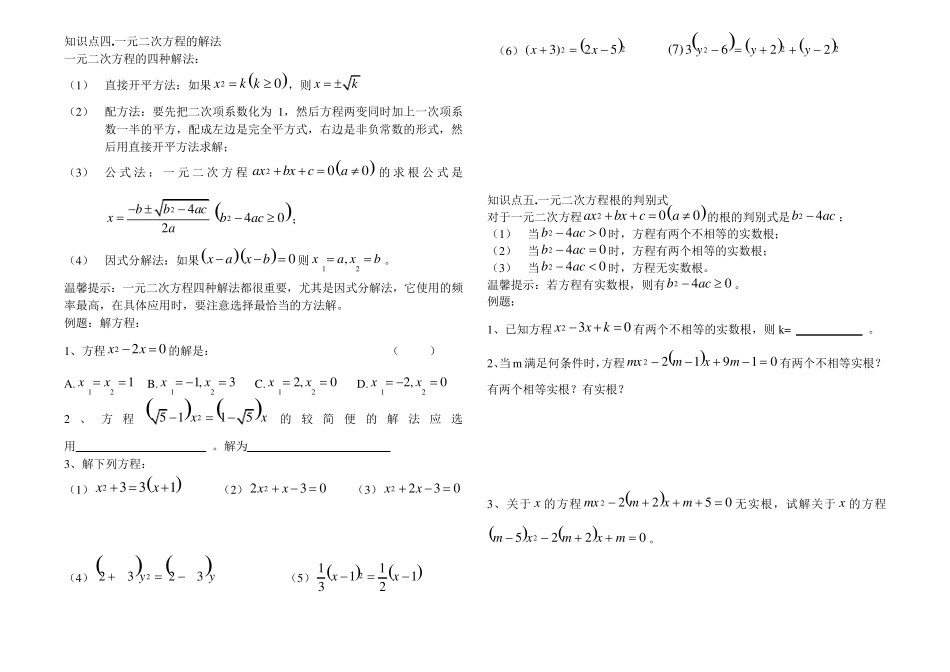 知识点四.一元二次方程的解法
一元二次方程的四种解法：
（1） 直接开平方法：如果 x2 = k (k ≥ 0)，则 x = ±√k
（2） 配方法：要先把二次项系数化为 1，然后方程两变同时加上一次项系
数一半的平方，配成左边是完全平方式，右边是非负常数的形式，然
后用直接开平方法求解；
（3） 公式法：一元二次方程 ax2 + bx + c = 0 (a ≠ 0) 的求根公式是
x = (−b ± √b2 − 4ac)/2a (b2 − 4ac ≥ 0)；
（4） 因式分解法：如果 (x − a)(x − b) = 0 则 x1 = a, x2 = b 。
温馨提示：一元二次方程四种解法都很重要，尤其是因式分解法，它使用的频
率最高，在具体应用时，要注意选择最恰当的方法解。
例题：解方程：
1、方程 x2 − 2x = 0 的解是： （ ）
A. x1 = x2 = 1 B. x1 = −1, x2 = 3 C. x1 = 2, x2 = 0 D. x1 = −2, x2 = 0
2、方程 (√5 − 1)x2 = (1 − √5)x 的较简便的解法应选
用 。解为
3、解下列方程：
（1）x2 + 3 = 3(x + 1) （2）2x2 + x − 3 = 0 （3）x2 + 2x − 3 = 0
（4）(2 + 3)y2 = (2 − 3)y （5）1/3 (x − 1)2 = 1/2 (x − 1)
（6）(x + 3)2 = (2x − 5)2 (7) 3(y2 − 6) = (y + 2)2 + (y − 2)2
知识点五.一元二次方程根的判别式
对于一元二次方程 ax2 + bx + c = 0 (a ≠ 0) 的根的判别式是 b2 − 4ac ；
（1） 当 b2 − 4ac > 0 时，方程有两个不相等的实数根；
（2） 当 b2 − 4ac = 0 时，方程有两个相等的实数根；
（3） 当 b2 − 4ac < 0 时，方程无实数根。
温馨提示：若方程有实数根，则有 b2 − 4ac ≥ 0 。
例题：
1、已知方程 x2 − 3x + k = 0 有两个不相等的实数根，则 k= 。
2、当 m 满足何条件时，方程 mx2 − 2(m − 1)x + 9m − 1 = 0 有两个不相等实根？
有两个相等实根？有实根？
3、关于 x 的方程 mx2 − 2(m + 2)x + m + 5 = 0 无实根，试解关于 x 的方程
(m − 5)x2 − 2(m + 2)x + m = 0 。